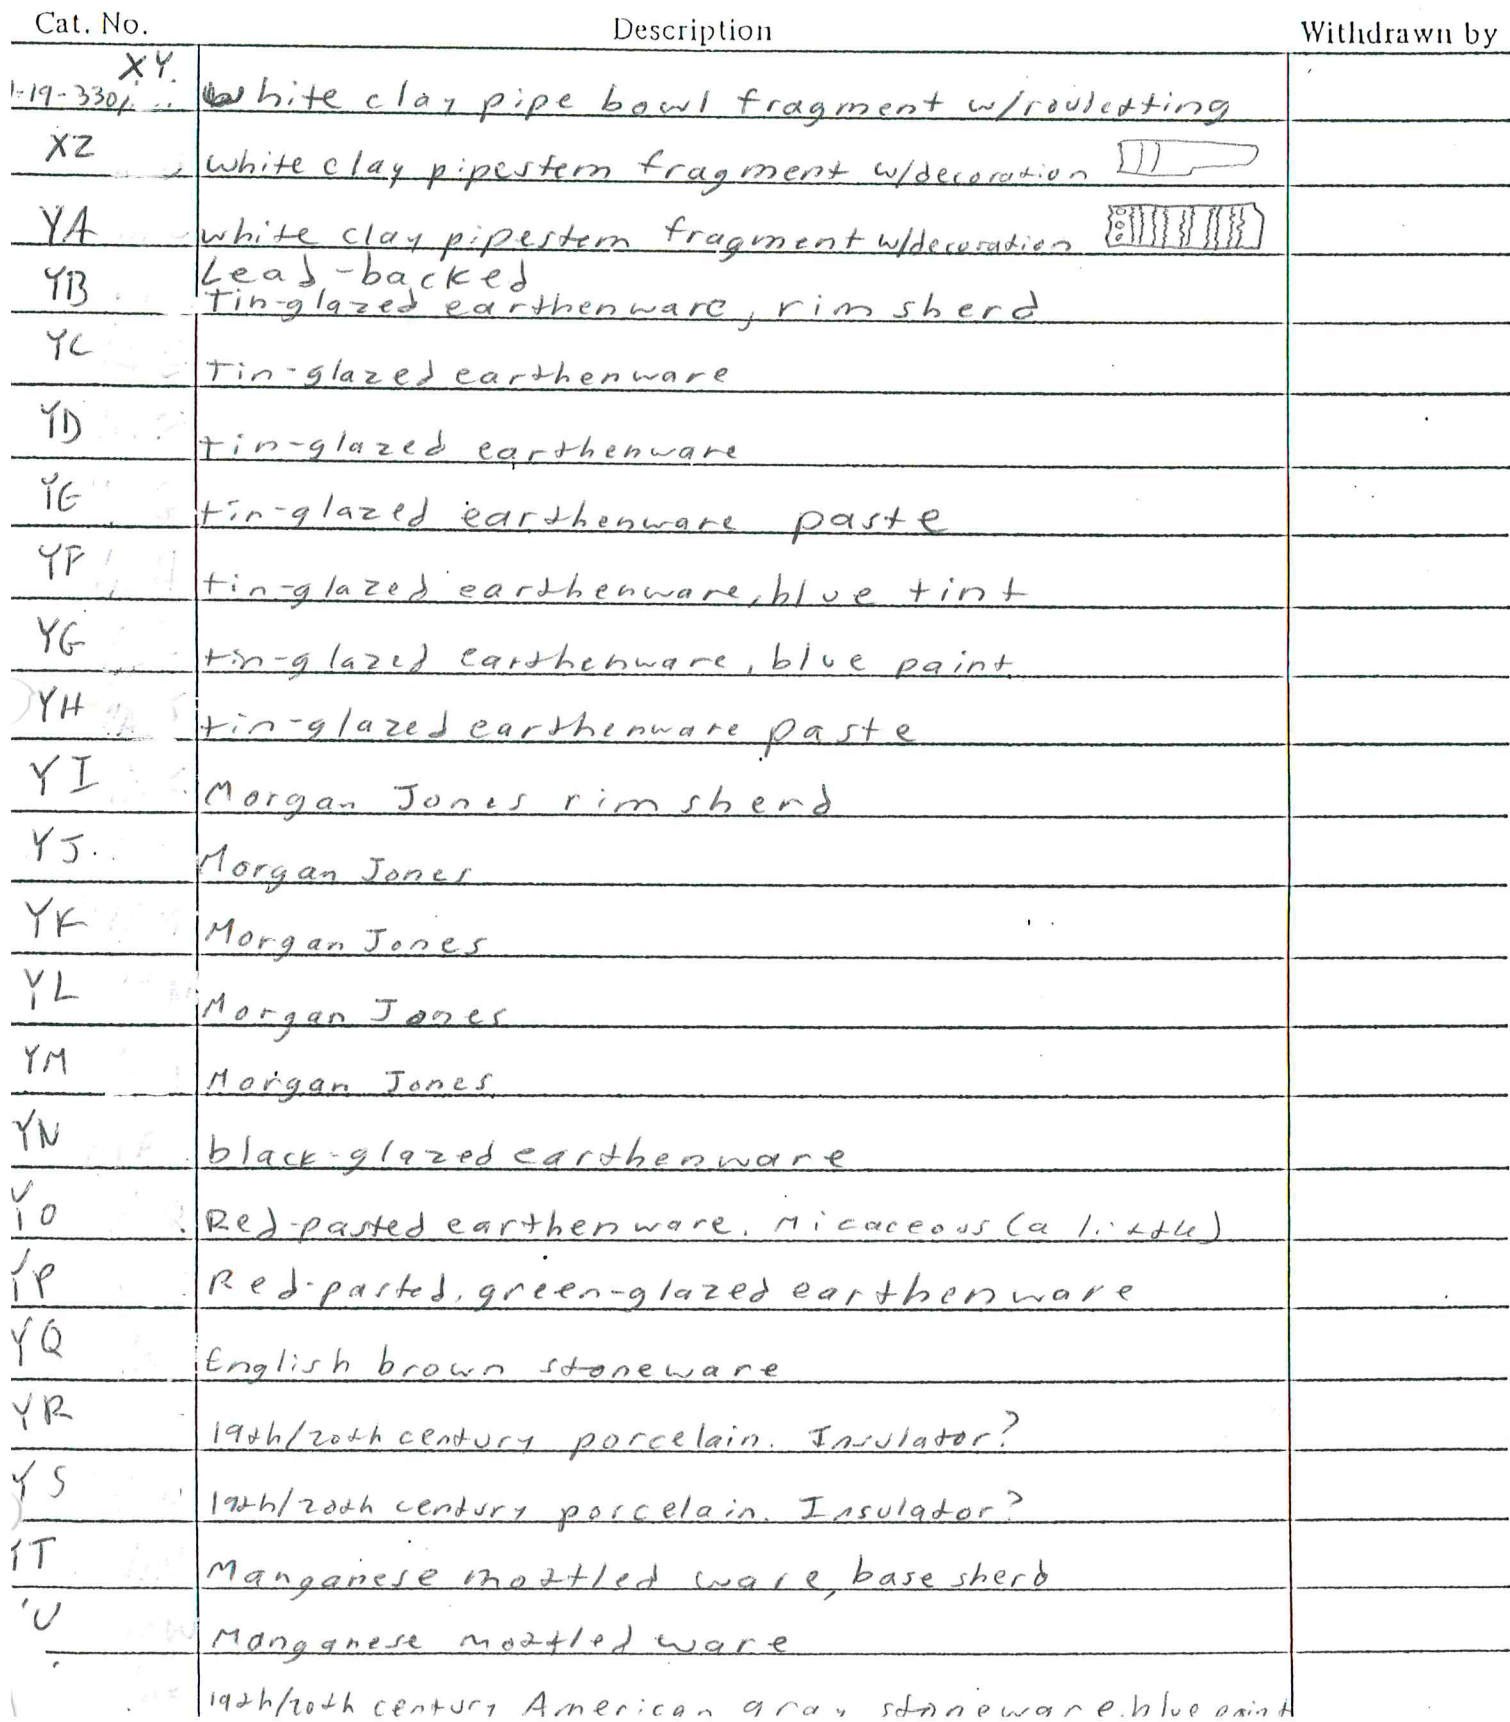 Cat. No. Description Withdrawn by
XY.
1-19-330/ White clay pipe bowl fragment w/rouletting
XZ white clay pipestem fragment w/decoration
YA white clay pipestem fragment w/decoration
Lead-backed
YB Tin-glazed earthenware, rim sherd
YC Tin-glazed earthenware
YD tin-glazed earthenware
YE tin-glazed earthenware paste
YF tin-glazed earthenware, blue tint
YG tin-glazed earthenware, blue paint
YH tin-glazed earthenware paste
YI Morgan Jones rim sherd
YJ. Morgan Jones
YK Morgan Jones
YL Morgan Jones
YM Morgan Jones
YN black-glazed earthenware
YO Red-pasted earthenware. Micaceous (a little)
YP Red-pasted, green-glazed earthenware
YQ English brown stoneware
YR 19th/20th century porcelain. Insulator?
YS 19th/20th century porcelain. Insulator?
YT Manganese mottled ware, base sherd
YU Manganese mottled ware
19th/20th century American gray stoneware, blue paint